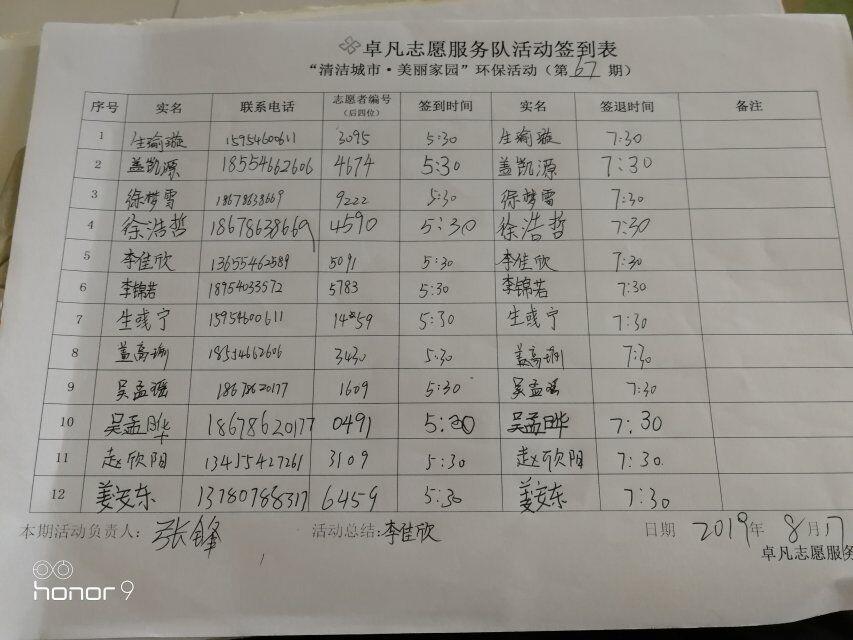 卓凡志愿服务队活动签到表
“清洁城市·美丽家园”环保活动（第67期）
序号 实名 联系电话 志愿者编号（后四位） 签到时间 实名 签退时间 备注
1 生瑜璇 15954600611 3095 5:30 生瑜璇 7:30
2 盖凯源 18554662606 4674 5:30 盖凯源 7:30
3 徐梦雪 18678638669 9222 5:30 徐梦雪 7:30
4 徐浩哲 18678638669 4590 5:30 徐浩哲 7:30
5 李佳欣 13655462589 5091 5:30 李佳欣 7:30
6 李锦若 18954033572 5783 5:30 李锦若 7:30
7 生彧宁 15954600611 1459 5:30 生彧宁 7:30
8 盖高瑜 18554662606 3430 5:30 盖高瑜 7:30
9 吴孟瑶 18678620177 1609 5:30 吴孟瑶 7:30
10 吴孟晔 18678620177 0491 5:30 吴孟晔 7:30
11 赵欣阳 13455427261 3109 5:30 赵欣阳 7:30
12 姜安东 13780788317 6459 5:30 姜安东 7:30
本期活动负责人：张锋 活动总结：李佳欣 日期 2019年8月17
卓凡志愿服务
honor 9